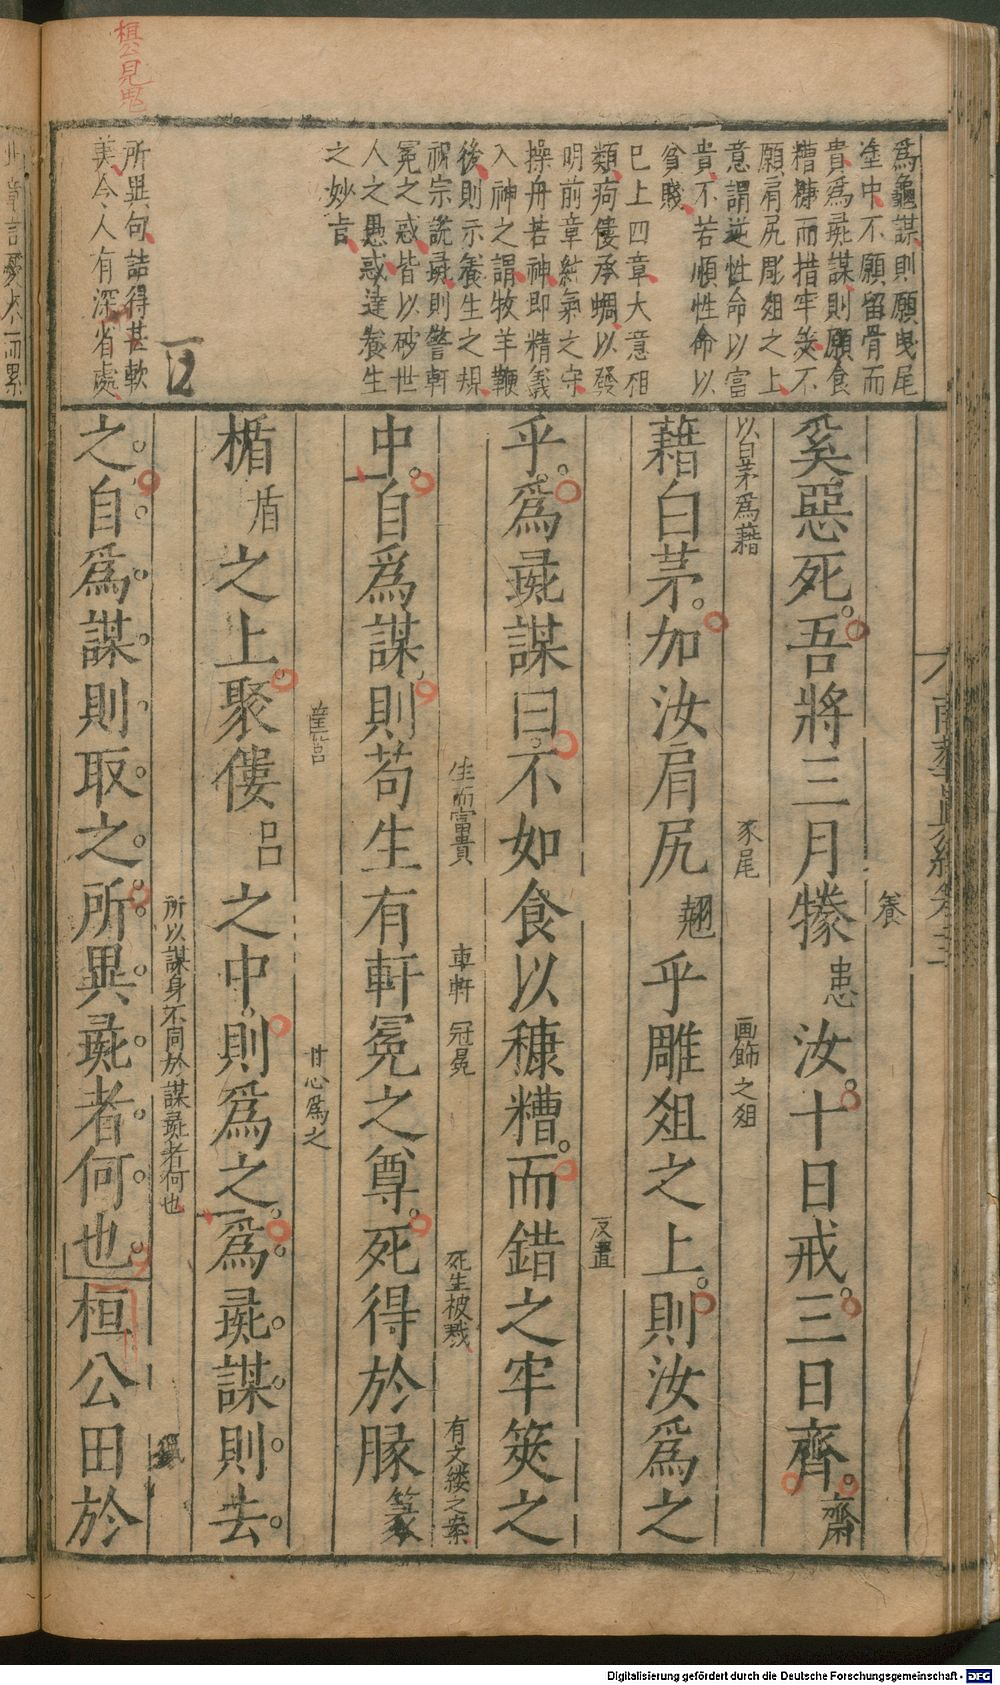 桓公見鬼
爲龜謀則願曳尾
塗中不願留骨而
貴爲彘謀則願食
糟糠而措牢筴不
願肩尻彫俎之上
意謂逆性命以富
貴不若順性命以
貧賤
已上四章大意相
類痀僂承蜩以發
明前章純氣之守
操舟若神即精義
入神之謂牧羊鞭
後則示養生之規
祝宗說彘則警軒
冕之惑皆以砂世
人之愚惑達養生
之妙旨
所異句詰得甚軟
美令人有深省處
南華真經卷三
養
奚惡死吾將三月㹖患汝十日戒三日齊齋
以白茅爲藉
豕尾
画飾之俎
藉白茅加汝肩尻翹乎雕俎之上則汝爲之
反置
乎爲彘謀曰不如食以糠糟而錯之牢筴之
生而富貴
車軒
冠冕
死生被戮
有文縷之案
中自爲謀則苟生有軒冕之尊死得於腞篆
筐筥
甘心爲之
楯盾之上聚僂呂之中則爲之爲彘謀則去
所以謀身不同於謀彘者何也
之自爲謀則取之所異彘者何也桓公田於
Digitalisierung gefördert durch die Deutsche Forschungsgemeinschaft - DFG